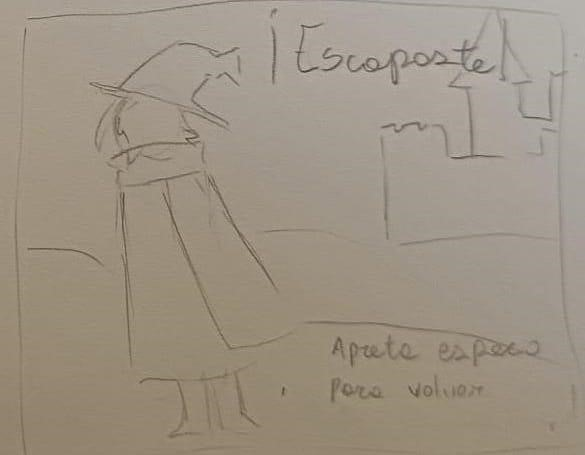 ¡Escapaste!
Apreta espacio
para volver